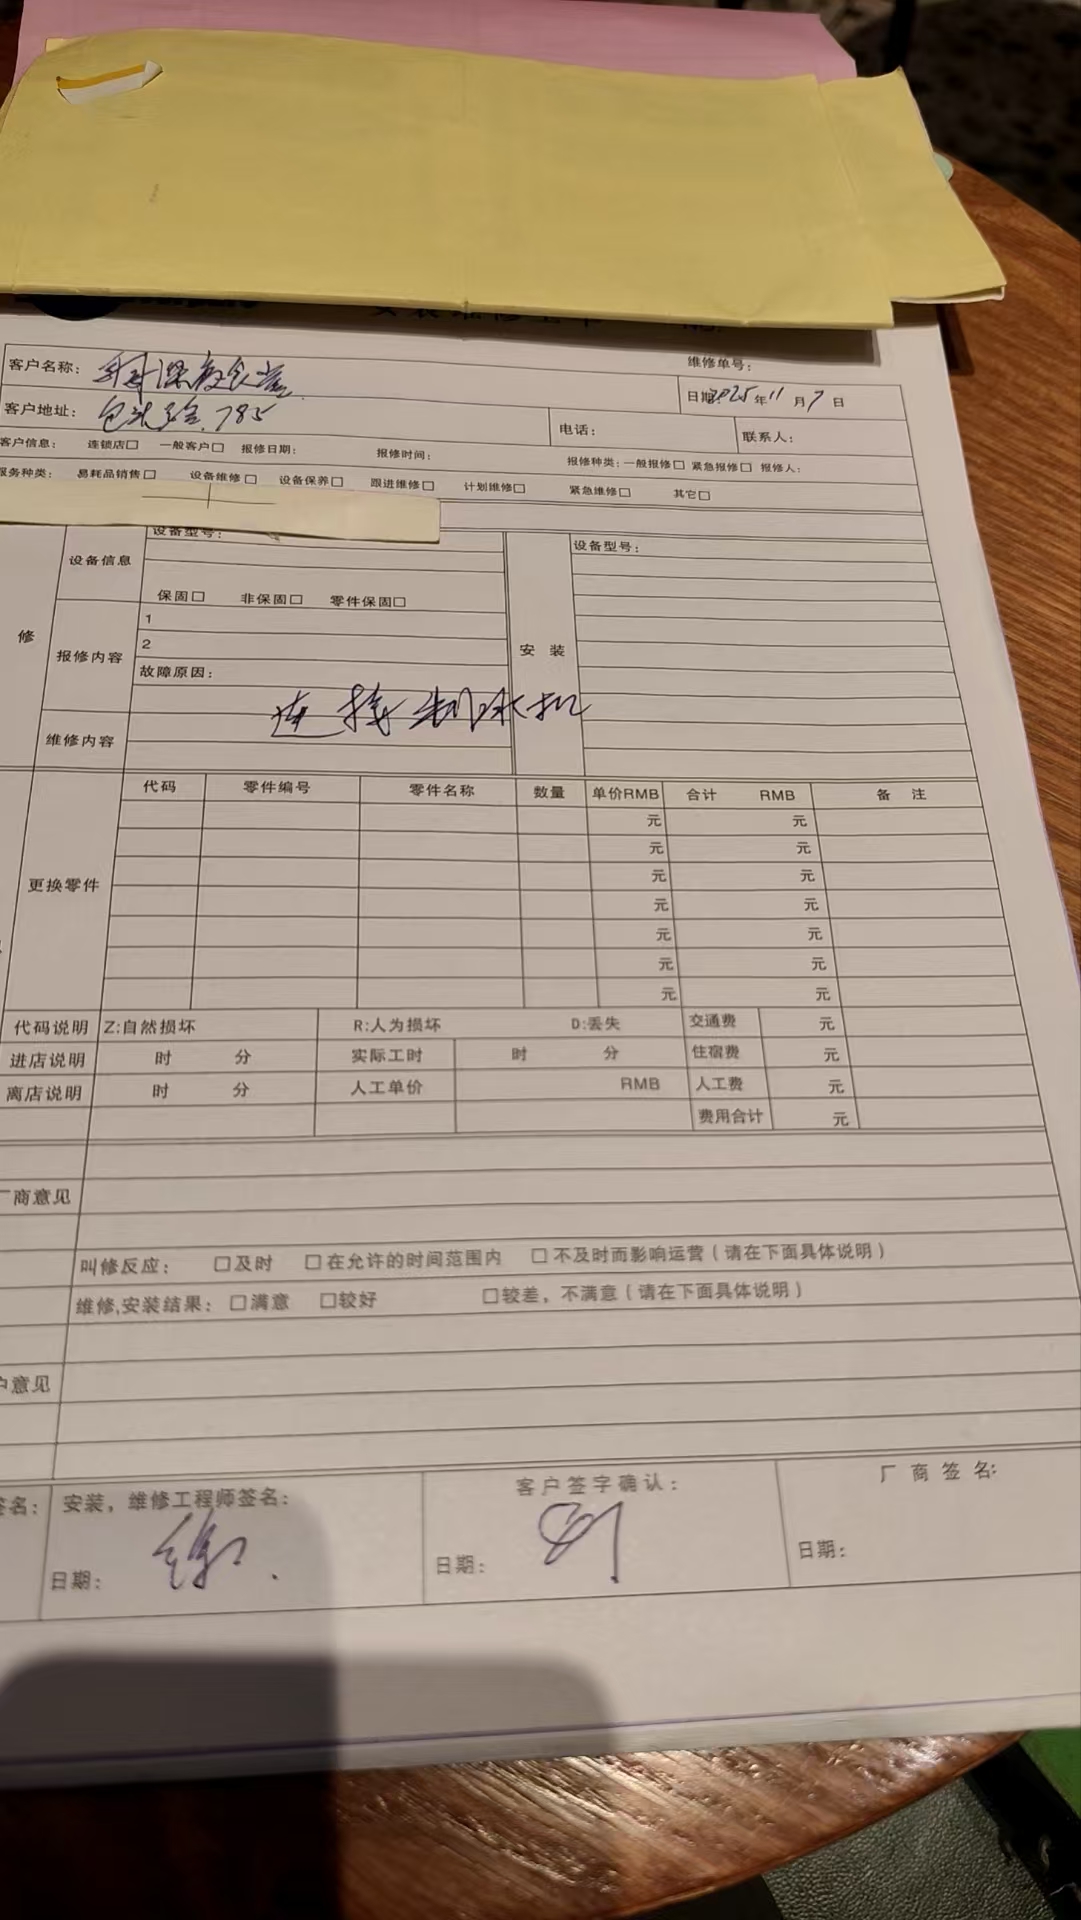 维修单号：
客户名称：
日期：2025年11月7日
客户地址：
785
电话：
联系人：
客户信息： 连锁店□ 一般客户□ 报修日期： 报修时间： 报修种类：一般报修□ 紧急报修□ 报修人：
服务种类： 易耗品销售□ 设备维修□ 设备保养□ 跟进维修□ 计划维修□ 紧急维修□ 其它□
设备型号：
设备型号：
设备信息
保固□ 非保固□ 零件保固□
修
报修内容
1
2
故障原因：
安 装
连接制冰机
维修内容
代码 零件编号 零件名称 数量 单价RMB 合计 RMB 备 注
元 元
元 元
元 元
更换零件
元 元
元 元
元 元
元 元
代码说明 Z:自然损坏 R:人为损坏 D:丢失 交通费 元
进店说明 时 分 实际工时 时 分 住宿费 元
离店说明 时 分 人工单价 RMB 人工费 元
费用合计 元
厂商意见
叫修反应： □及时 □在允许的时间范围内 □不及时而影响运营（请在下面具体说明）
维修,安装结果：□满意 □较好 □较差，不满意（请在下面具体说明）
户意见
签名： 安装，维修工程师签名： 客户签字确认： 厂商签名：
日期： 日期： 日期：